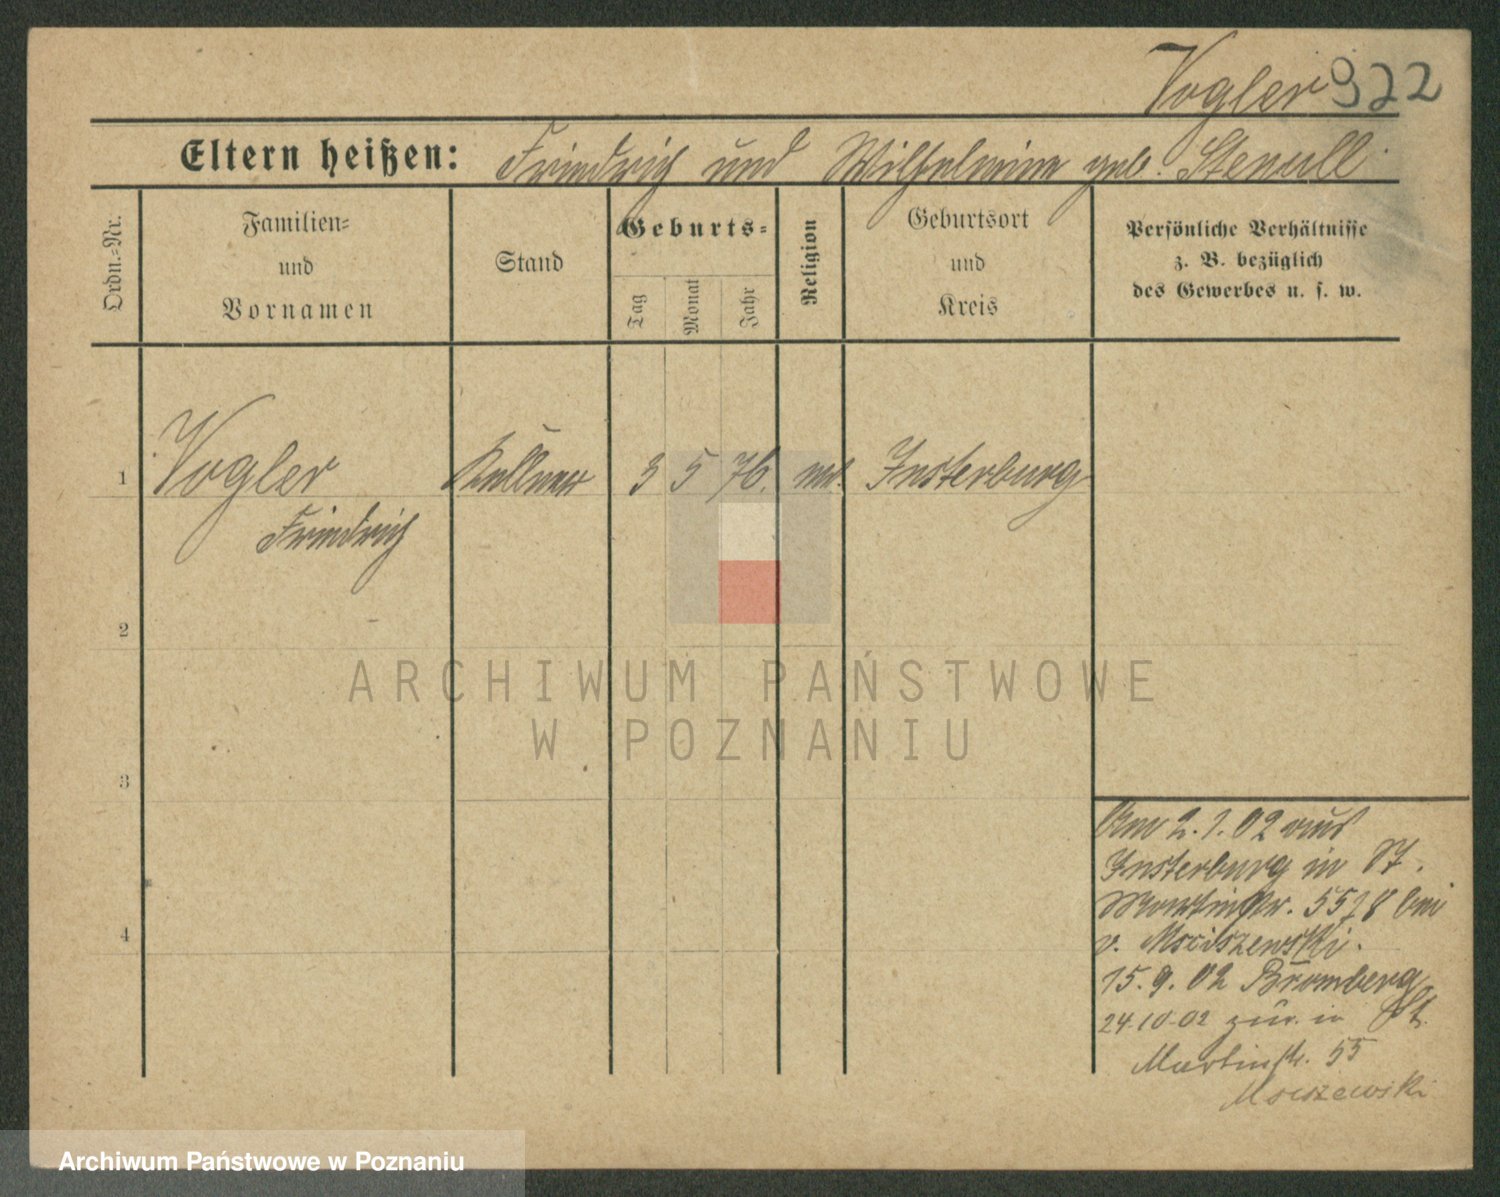 Vogler 922
Eltern heißen: Friedrich und Wilhelmine geb. Stenull
Ordn.=Nr.
Familien=
und
Vornamen
Stand
Geburts=
Tag
Monat
Jahr
Religion
Geburtsort
und
Kreis
Persönliche Verhältnisse
z. B. bezüglich
des Gewerbes u. s. w.
1 Vogler Kellner 3 5 76. Insterburg
Friedrich
2
3
4
Am 2.1.02 aus
Insterburg in St.
Martinstr. 55 bei
v. Msciszewski.
15.9.02 Bromberg
24.10.02 zur. in St.
Martinstr. 55
Msciszewski
ARCHIWUM PAŃSTWOWE
W POZNANIU
Archiwum Państwowe w Poznaniu